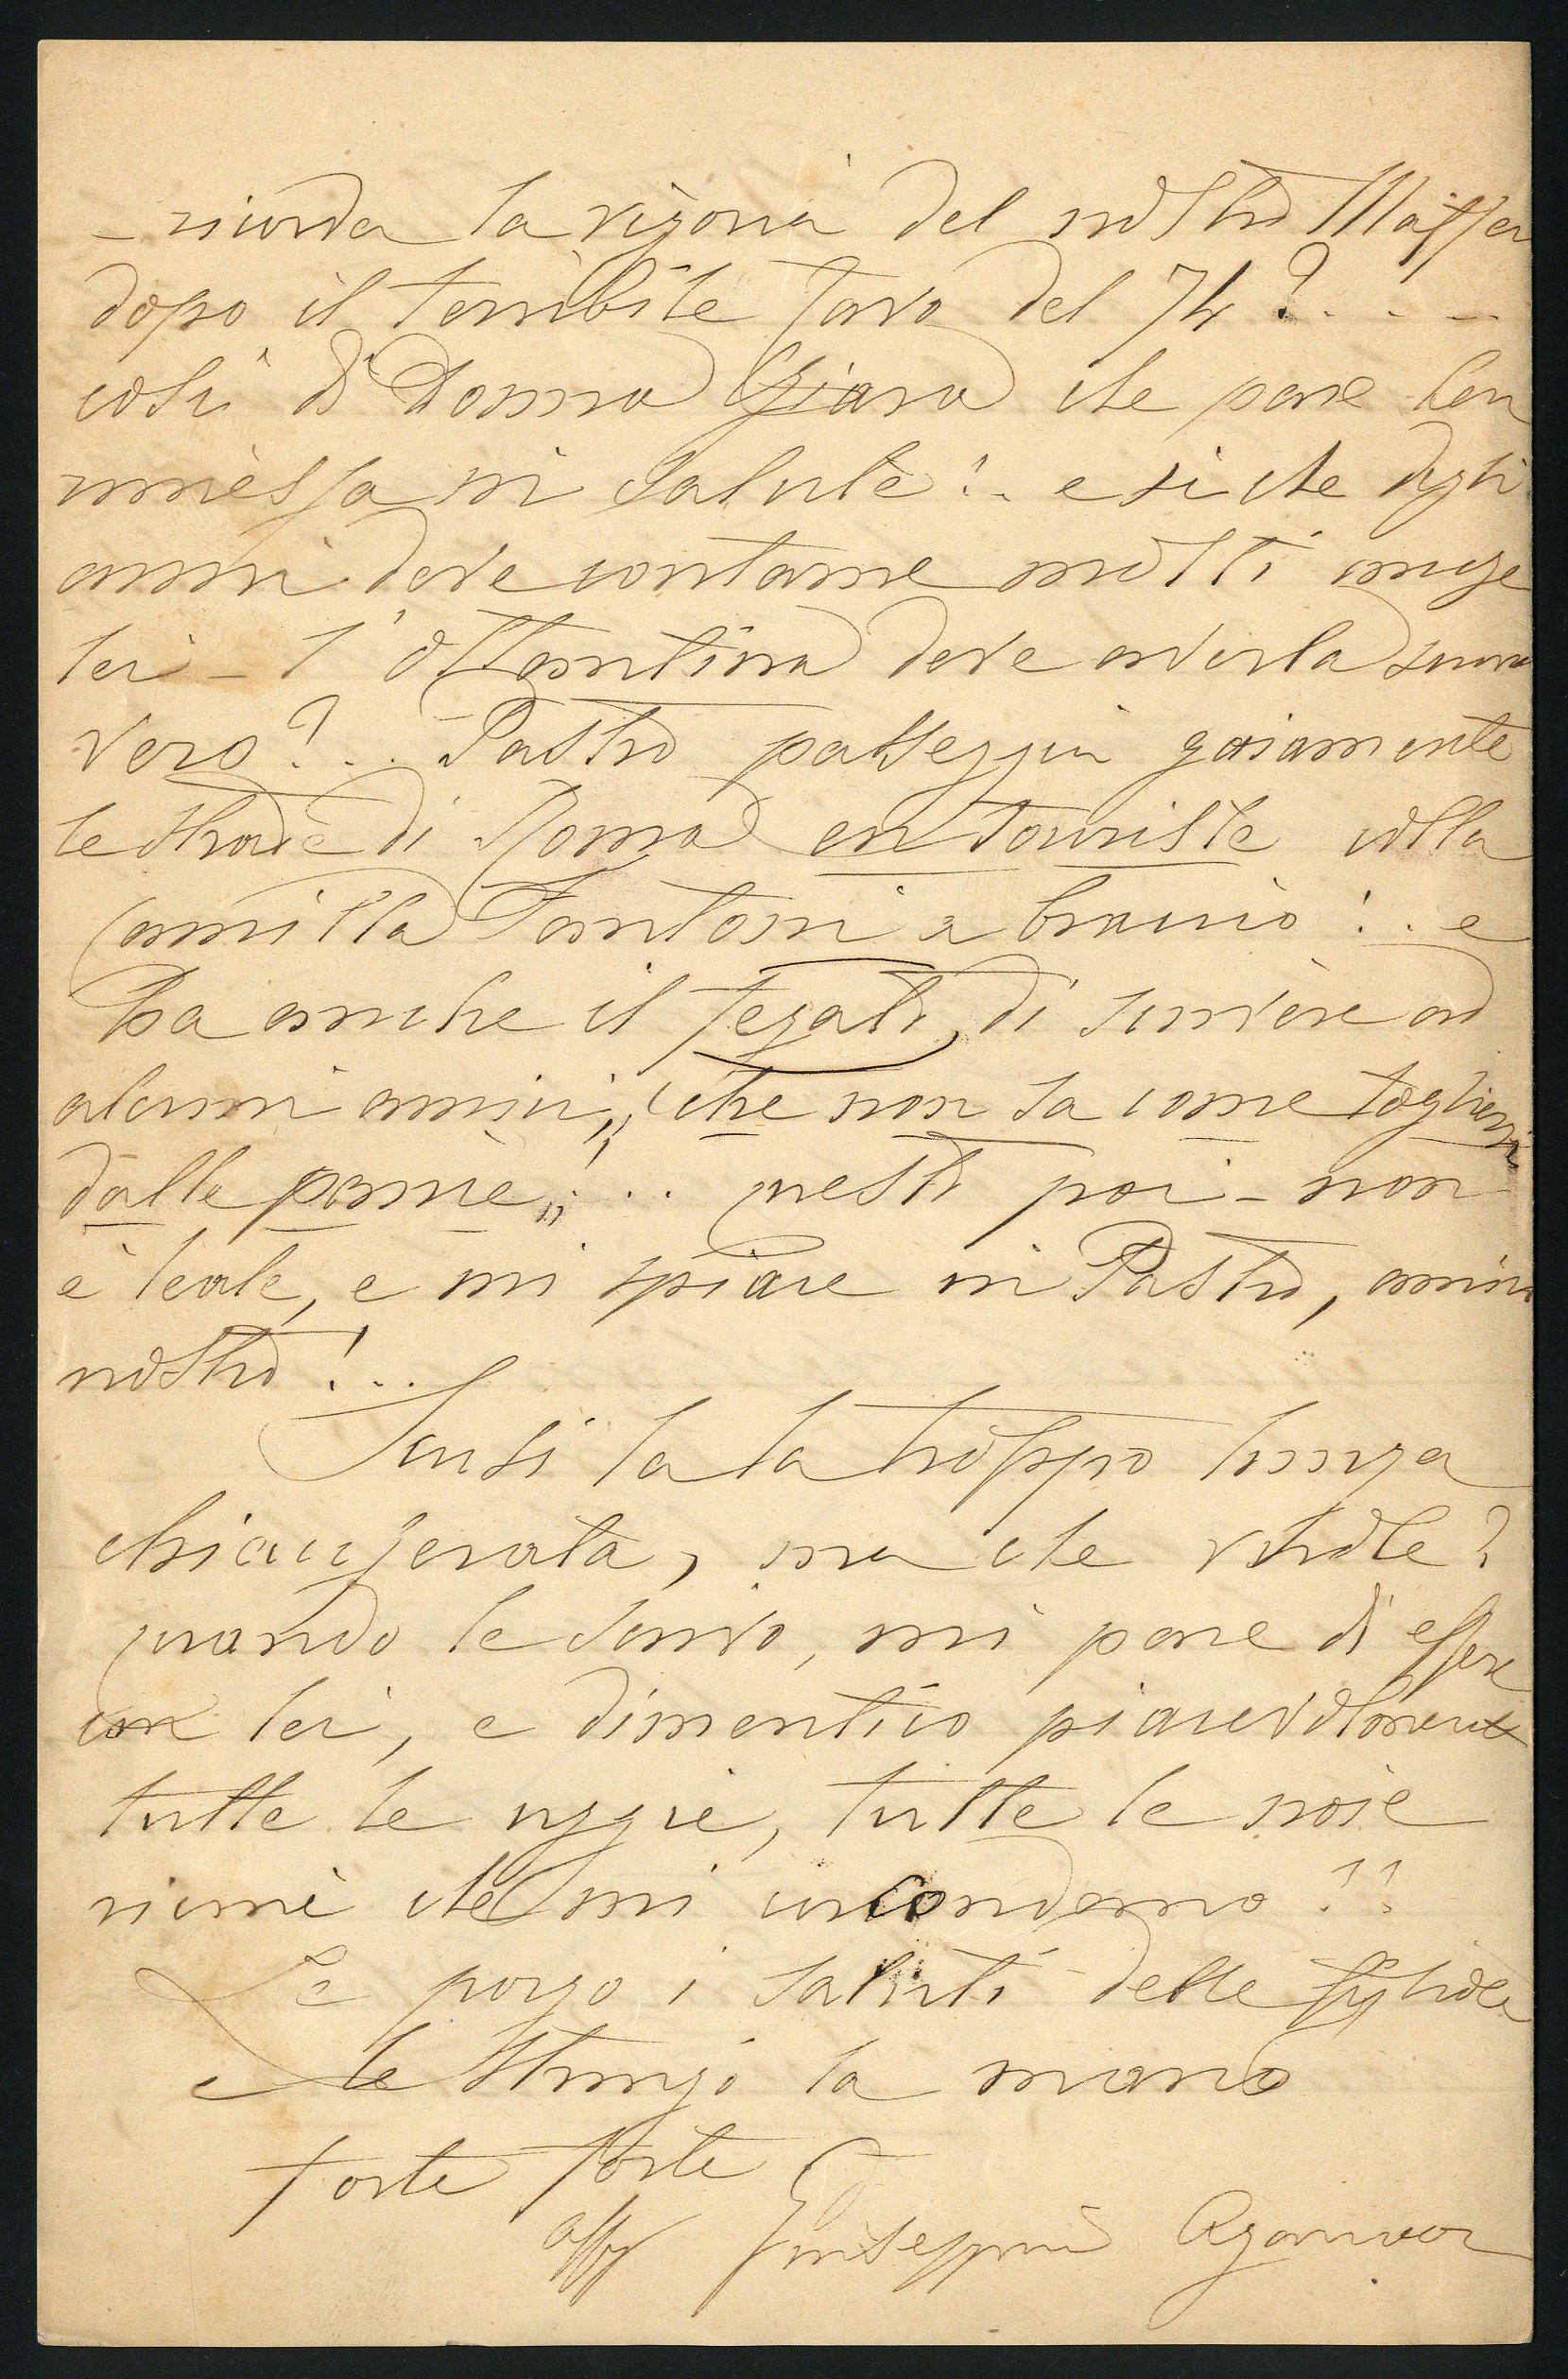 – ricorda la vigoria del nostro Maffei
dopo il terribile favo del 74? . . –
così di Donna Chiara che pare ben
rimessa in salute!.. e sì che degli
anni deve contarne molti anche
lei – l'ottantina deve averla suonata
vero?... Pastro passeggia gaiamente
le strade di Roma en touriste colla
Camilla Fantoni a braccio!.. e
ha anche il fegato, di scrivere ad
alcuni amici, „che non sa come togliersi
dalle panie„!... questo poi – non
è leale, e mi spiace in Pastro, amico
nostro!...
Scusi la la troppo lunga
chiaccherata, ma che vuole?
quando le scrivo, mi pare di essere
con lei, e dimentico piacevolmente
tutte le uggie, tutte le noie
che mi circondano!!
Le porgo i saluti delle figliole
e le stringo la mano
forte forte
aff Giuseppina Aganoor